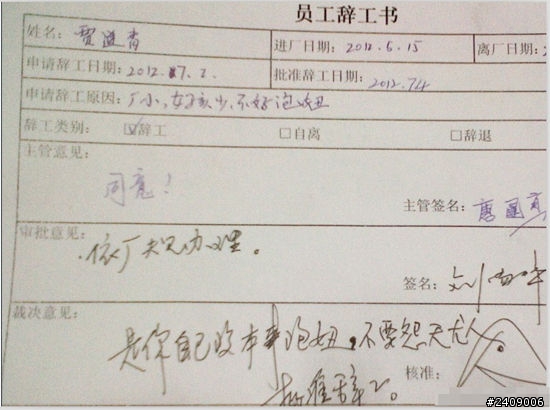 员工辞工书
姓名：贾进青 进厂日期：2012.6.15 离厂日期：
申请辞工日期：2012.7.2. 批准辞工日期：2012.7.4
申请辞工原因：厂小，女孩少，不好泡妞
辞工类别： ☑辞工 □自离 □辞退
主管意见：
同意！
主管签名：
审批意见：
依厂规办理。
签名：
裁决意见：
是你自己没本事泡妞，不要怨天尤人。
核准：
批准辞工。
#2409006